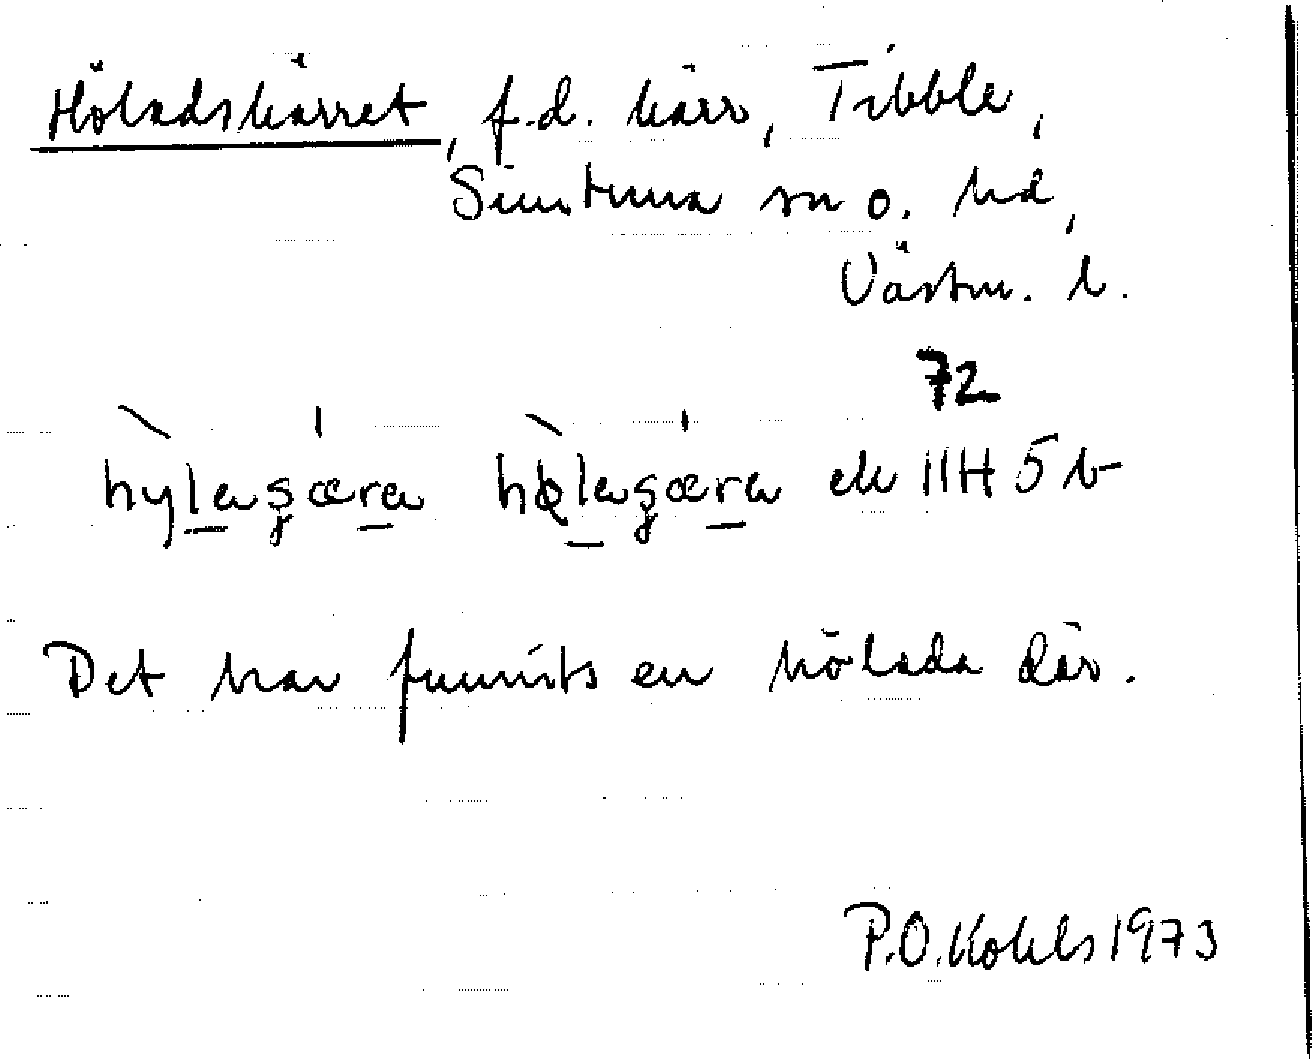 Höladskärret, f.d. kärr, Tibble,
Simtuna sn o. hd,
Västm. l.
72
hylaşæra hølaşæra ek 11H 5 b
Det har funnits en hölada där.
P.O. Kohls 1973